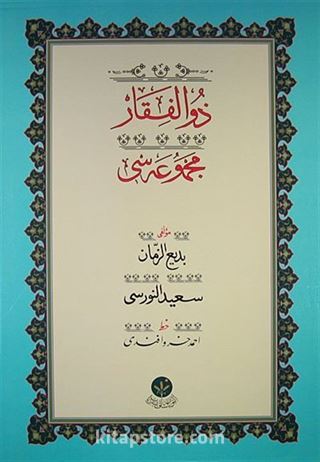 ذُو الفِقَار
مجموعه سی
مؤلفى
بديع الزمان
سعيد النورسى
خط
احمد خسرو افندى
kitapstore.com